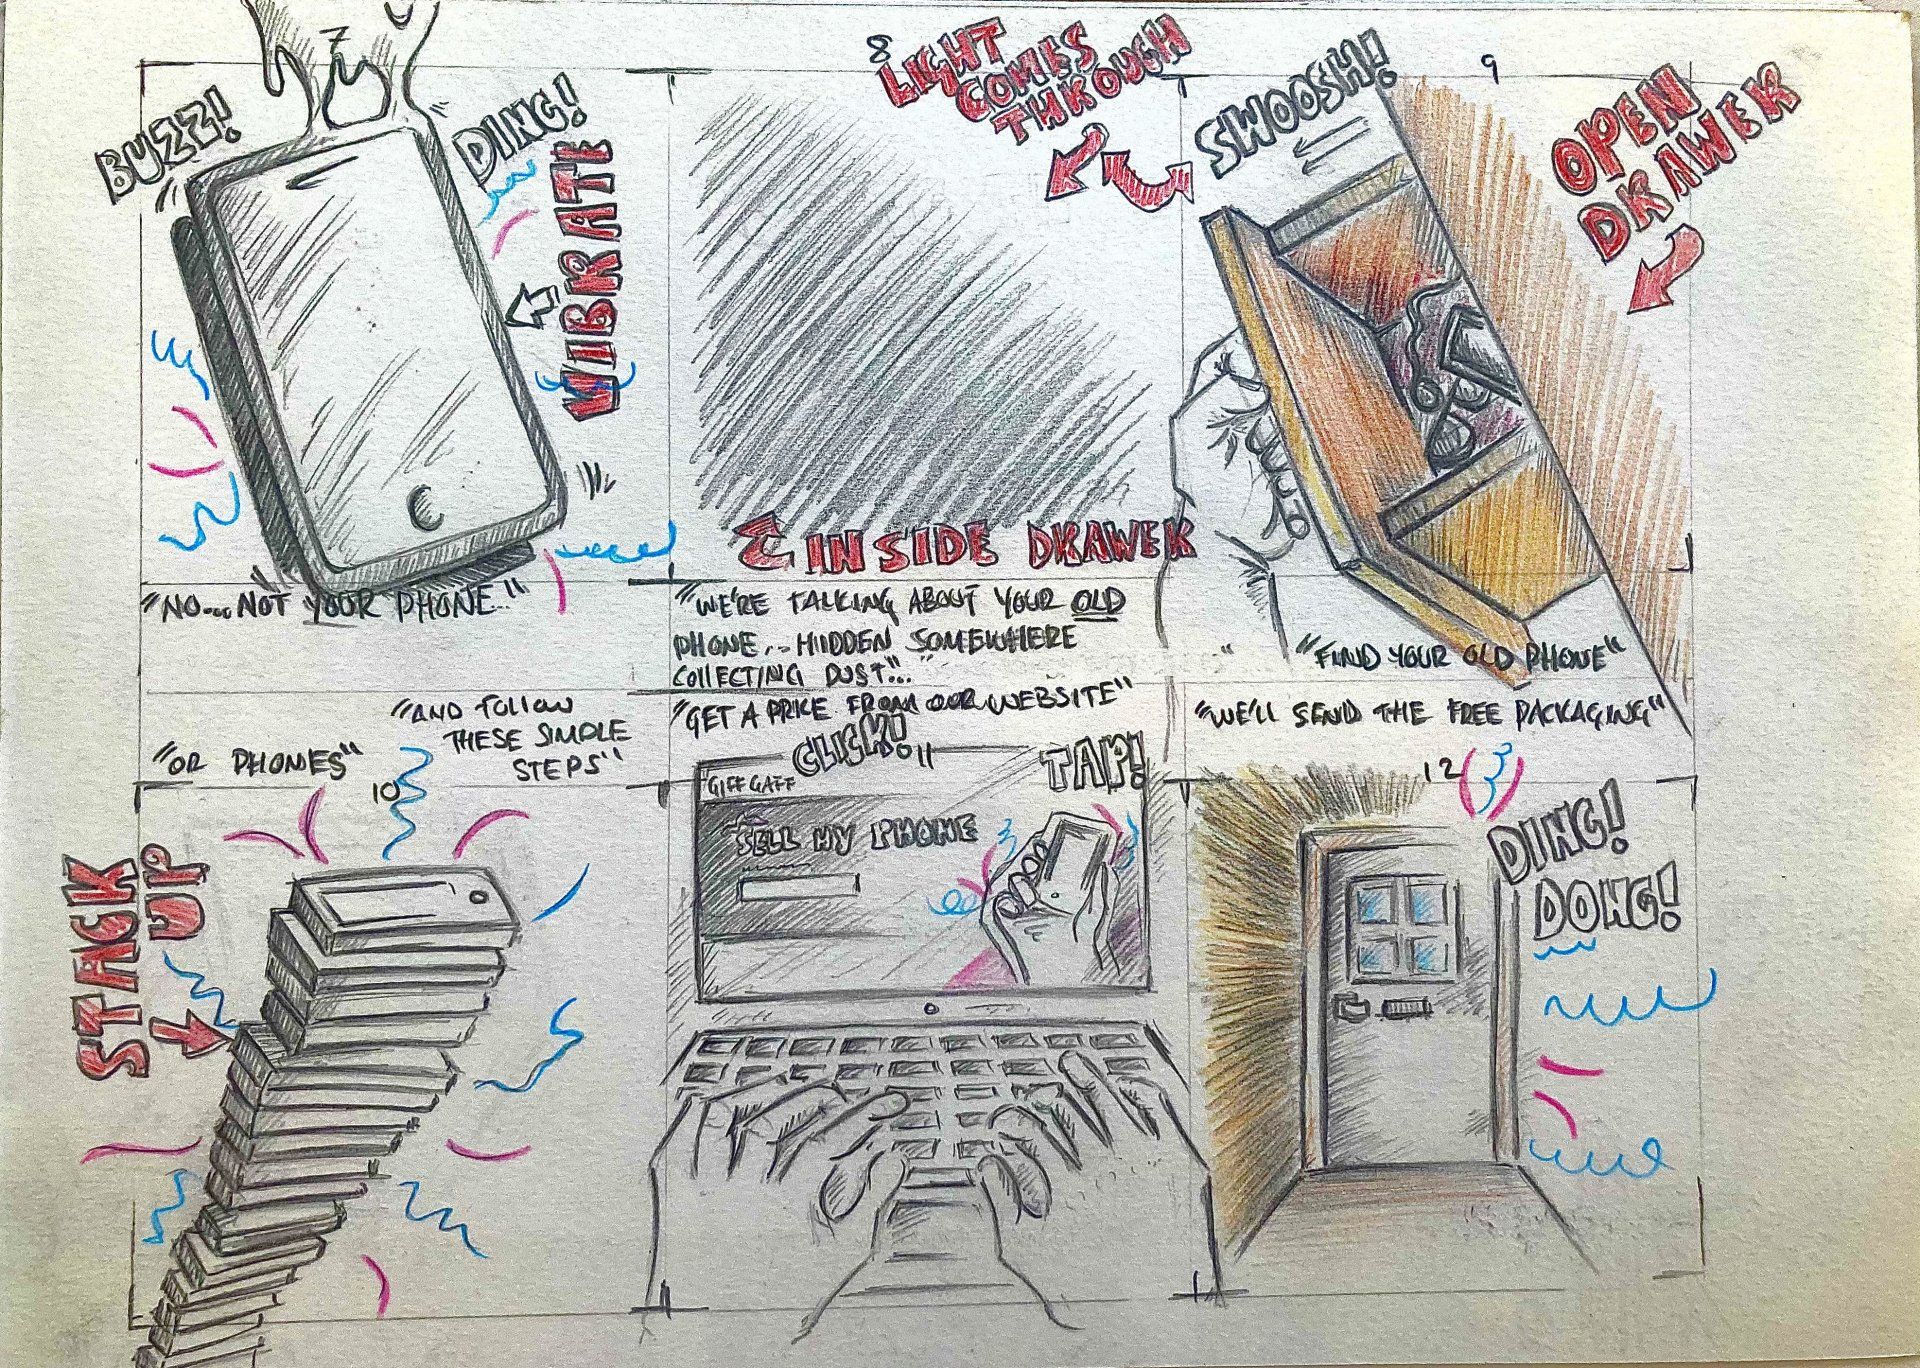 7
BUZZ!
DING!
VIBRATE
"NO... NOT YOUR PHONE..."
8
LIGHT
COMES
THROUGH
INSIDE DRAWER
"WE'RE TALKING ABOUT YOUR OLD
PHONE... HIDDEN SOMEWHERE
COLLECTING DUST..."
9
SWOOSH!
OPEN
DRAWER
"FIND YOUR OLD PHONE"
"OR PHONES"
"AND FOLLOW
THESE SIMPLE
STEPS"
10
STACK
UP
"GET A PRICE FROM OUR WEBSITE"
CLICK!
11
TAP!
GIFFGAFF
SELL MY PHONE
"WE'LL SEND THE FREE PACKAGING"
12
DING!
DONG!